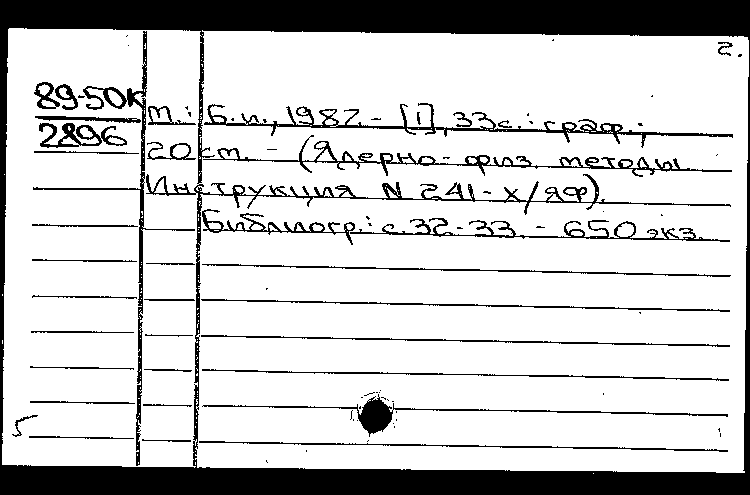 2.
89-50К
2896
М.: Б.и., 1987. - [1], 33с.: граф.;
20 см. - (Ядерно-физ. методы
Инструкция N 241-Х/ЯФ).
Библиогр.: с. 32-33. - 650 экз.
5